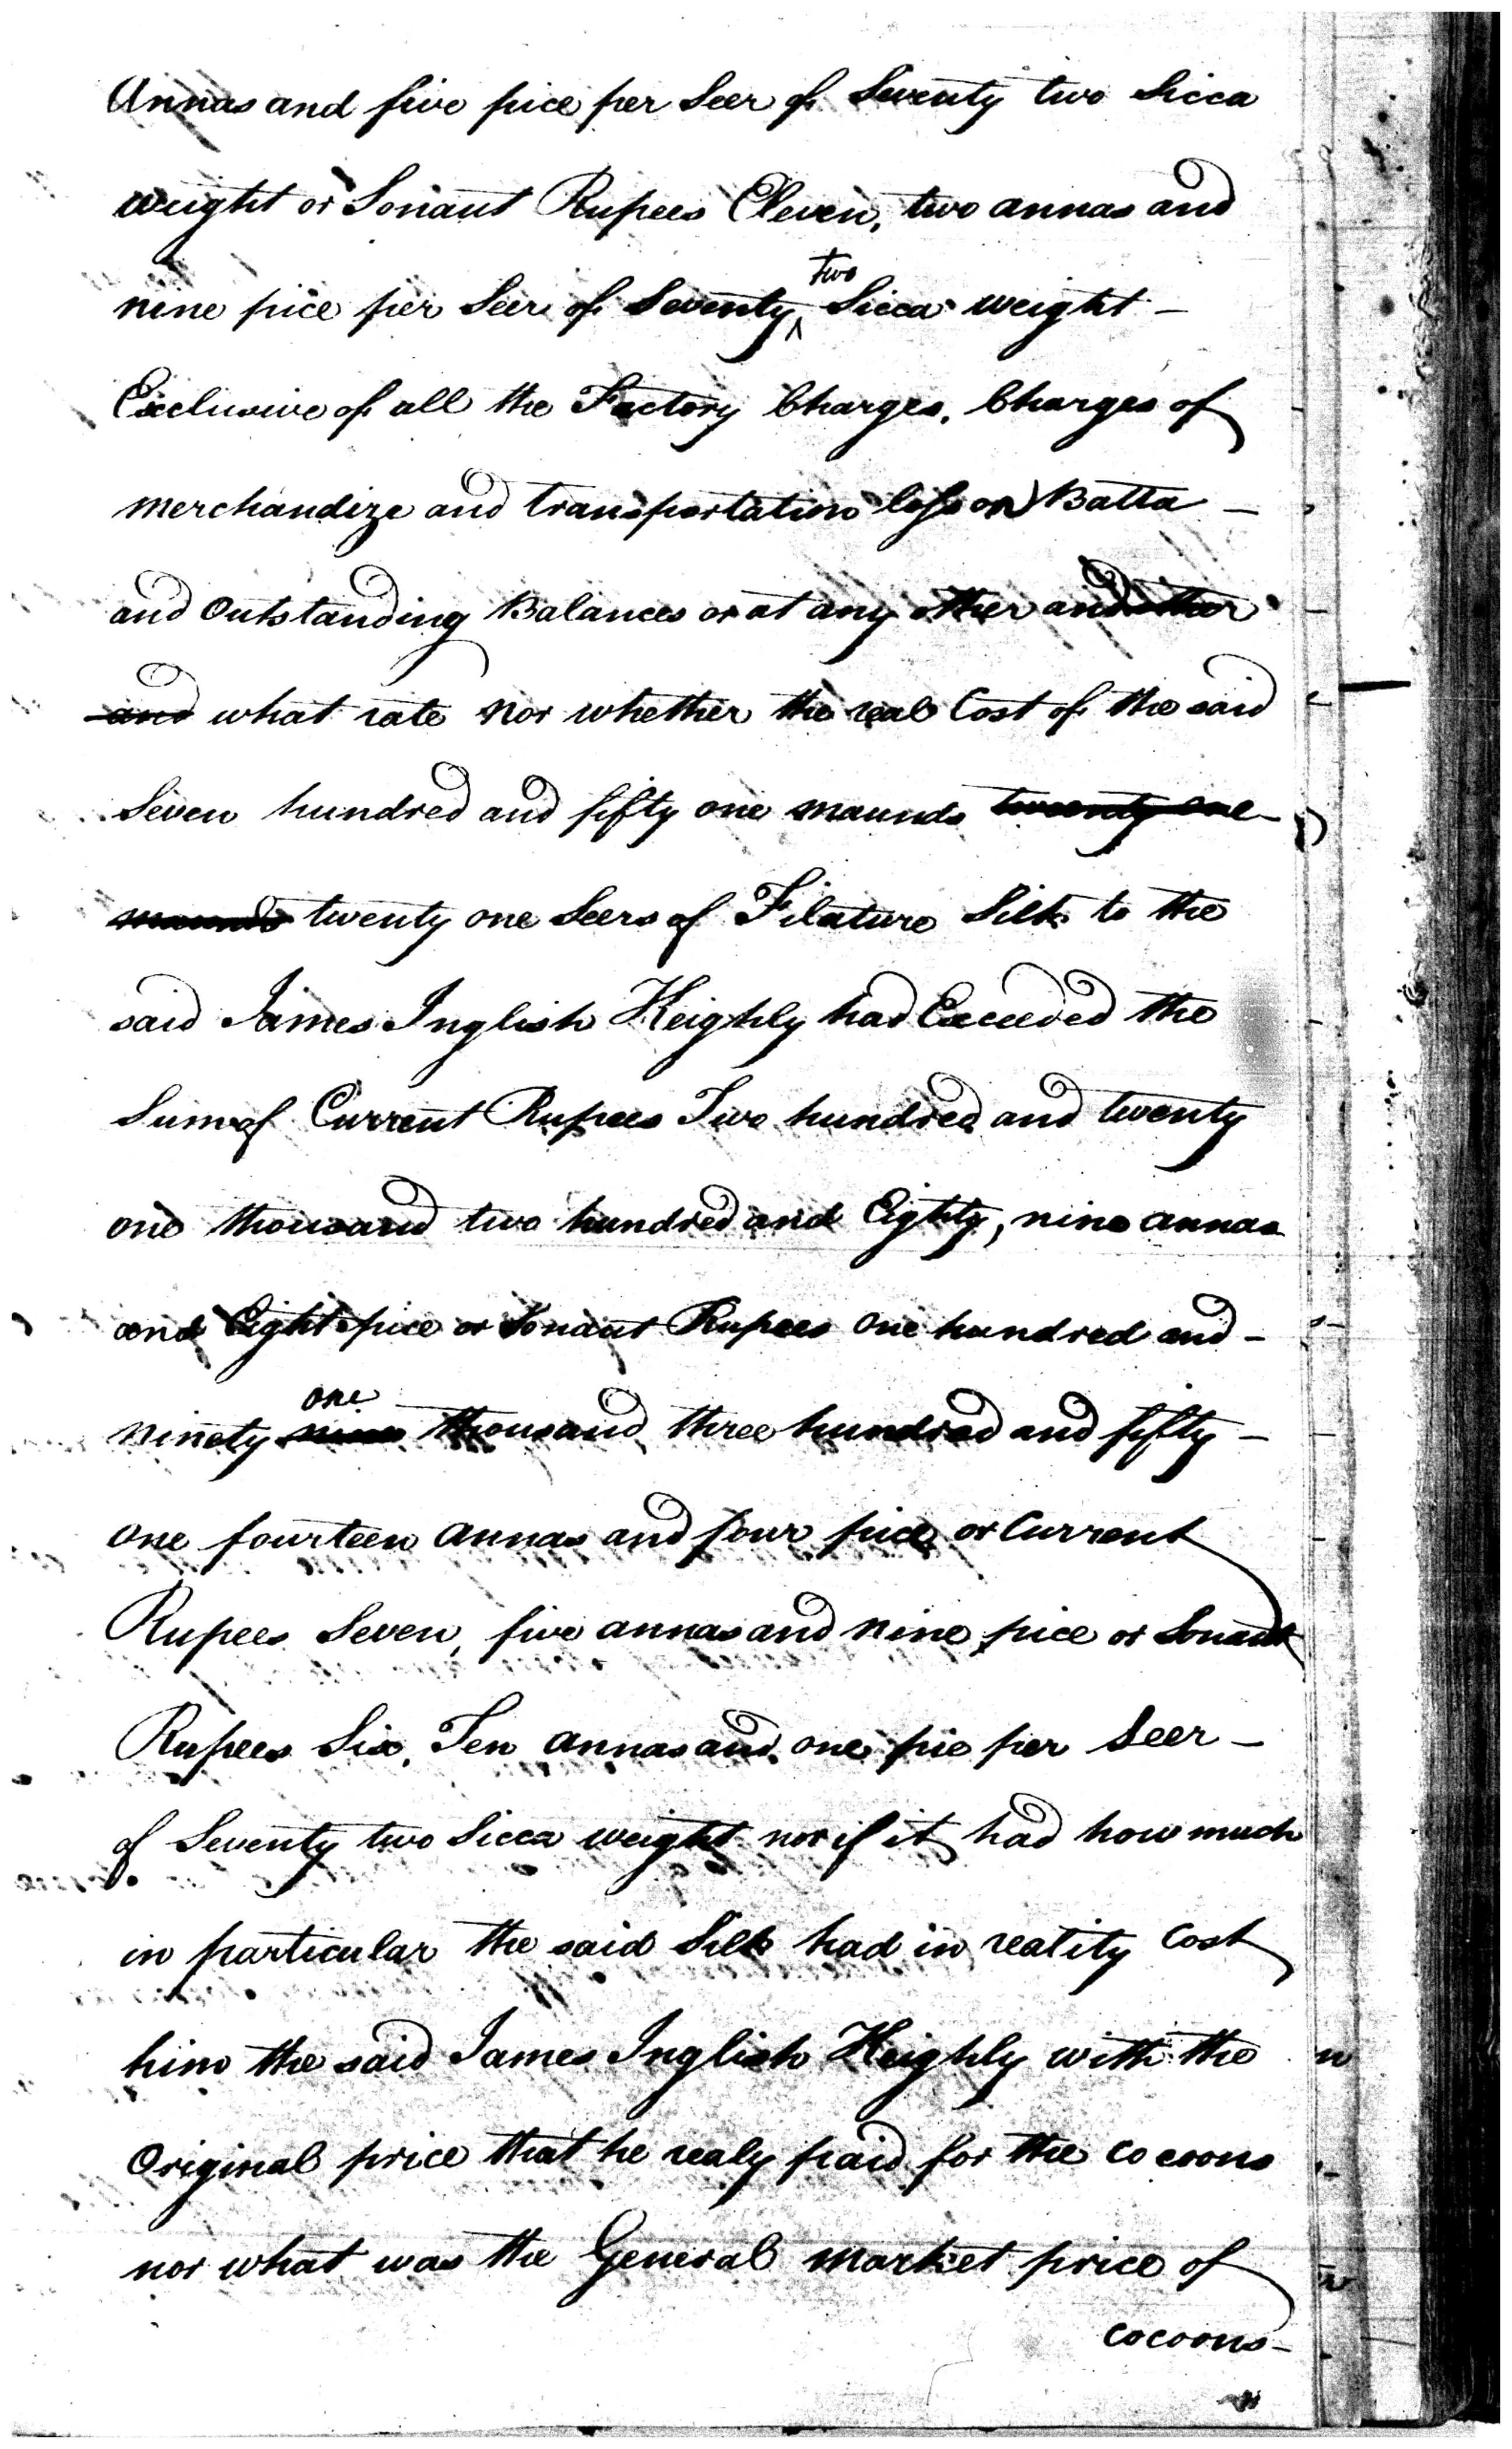 Annas and five pice per Seer of Seventy two Sicca
weight or Sonaut Rupees Eleven, two annas and
nine pice per Seer of Seventy two Sicca weight –
Exclusive of all the Factory Charges, Charges of
merchandize and transportation loss on Batta –
and Outstanding Balances or at any other and other
and what rate nor whether the real Cost of the said
Seven hundred and fifty one maunds twenty one –
maunds twenty one Seers of Filature Silk to the
said James Inglish Keighly had Exceeded the
Sum of Current Rupees Two hundred and twenty
one thousand two hundred and Eighty, nine annas
and Eight pice or Sonaut Rupees One hundred and –
ninety nine one thousand three hundred and fifty –
one fourteen annas and four pice or Current
Rupees Seven, five annas and nine pice or Sonaut
Rupees Six, Ten annas and one pie per Seer –
of Seventy two Sicca weight nor if it had how much
in particular the said Silk had in reality Cost
him the said James Inglish Keighly with the
Original price that he realy paid for the cocoons
nor what was the General market price of
cocoons –